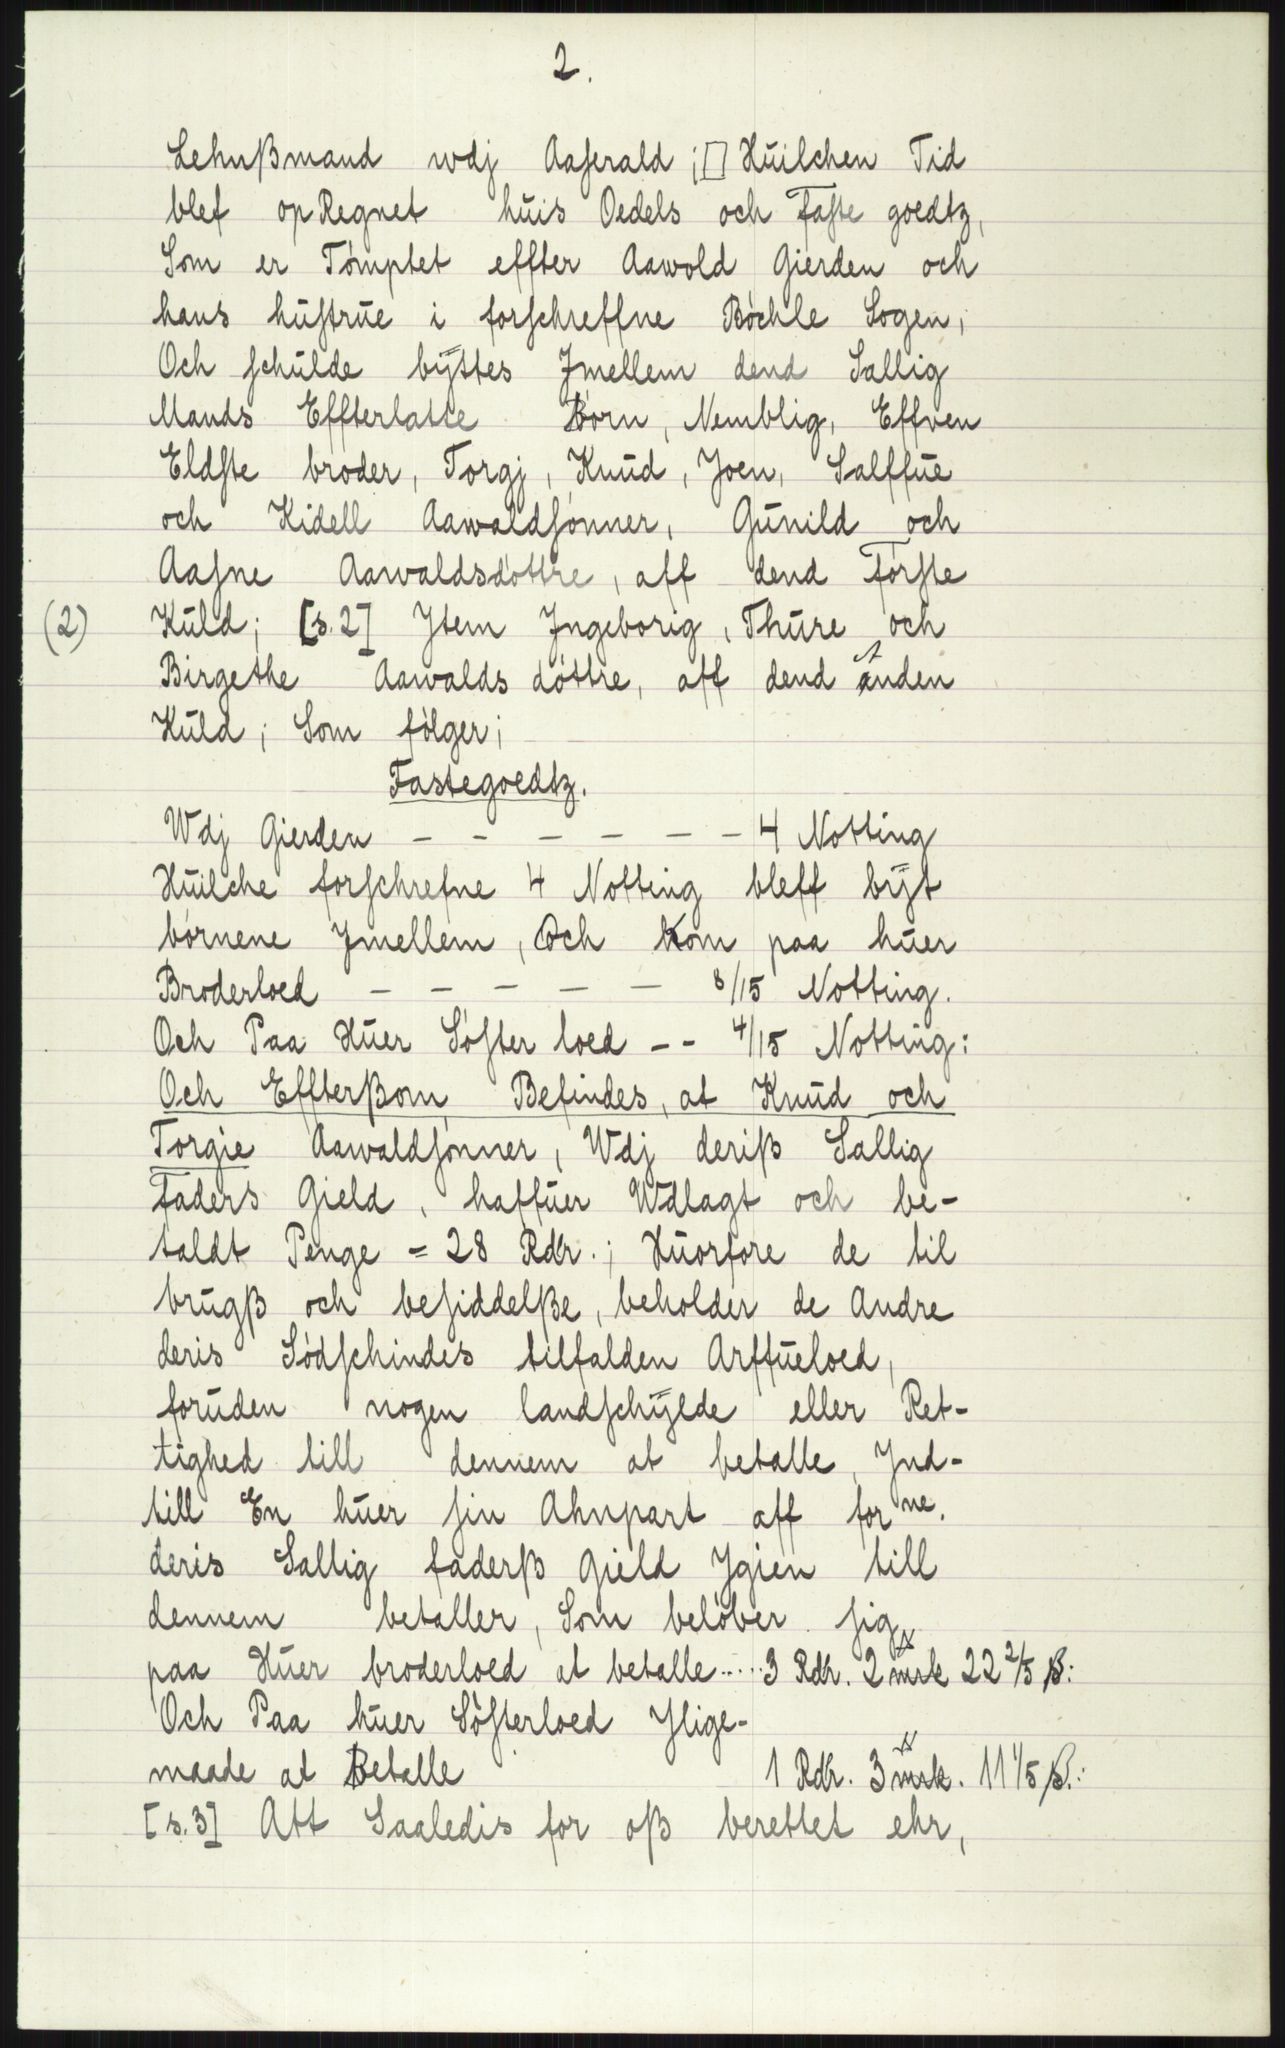 2.
Lehnßmand wdj Aaserald ; [] Huilchen Tid
blef opRegnet huis Oedels och faste goedtz,
Som er Tømptet effter Aawold Gierden och
hans hustrue i forschreffne Bøchle Sogen,
Och schulde byttes Jmellem dend Sallig
Mands Effterlatte Børn, Nemblig, Effven
Eldste broder, Torgj, Knud, Joen, Salffue
och Kidell Aawaldsønner, Gunild och
Aasne Aawaldsdøttre, aff dend første
(2) Kuld; [s.2] Jtem Jngeborig, Thure och
Birgethe Aawalds døttre, aff dend anden
Kuld; Som følger;
Fastegoedtz.
Wdj Gierden – – – – – – 4 Notting
Huilche forschrefne 4 Notting bleff byt
børnene Jmellem, Och kom paa huer
Broderloed – – – – – 8/15 Notting.
Och Paa Huer Søster loed -- 4/15 Notting:
Och Effterßom Befindes, at Knud och
Torgie Aawaldsønner, Wdj deriß Sallig
faders Gield, haffuer Wdlagt och be-
taldt Penge = 28 Rdr.; Huorfore de til
brugß och besiddelße, beholder de Andre
deris Sødschindes tilfalden Arffueloed,
foruden nogen landschylde eller Ret-
tighed till dennem at betalle, Jnd-
till En huer sin Ahnpart aff for ne.
deris Sallig faderß Gield Jgien till
dennem betaller, Som beløber sig
paa Huer broderloed at betalle ..... 3 Rdr. 2 mrk 22 2/5 ß:
Och Paa huer Søsterloed Jlige-
maade at Betalle 1 Rdr. 3 mrk. 11 1/5 ß.:
[s.3] Att Saaledis for oß berettet ehr,